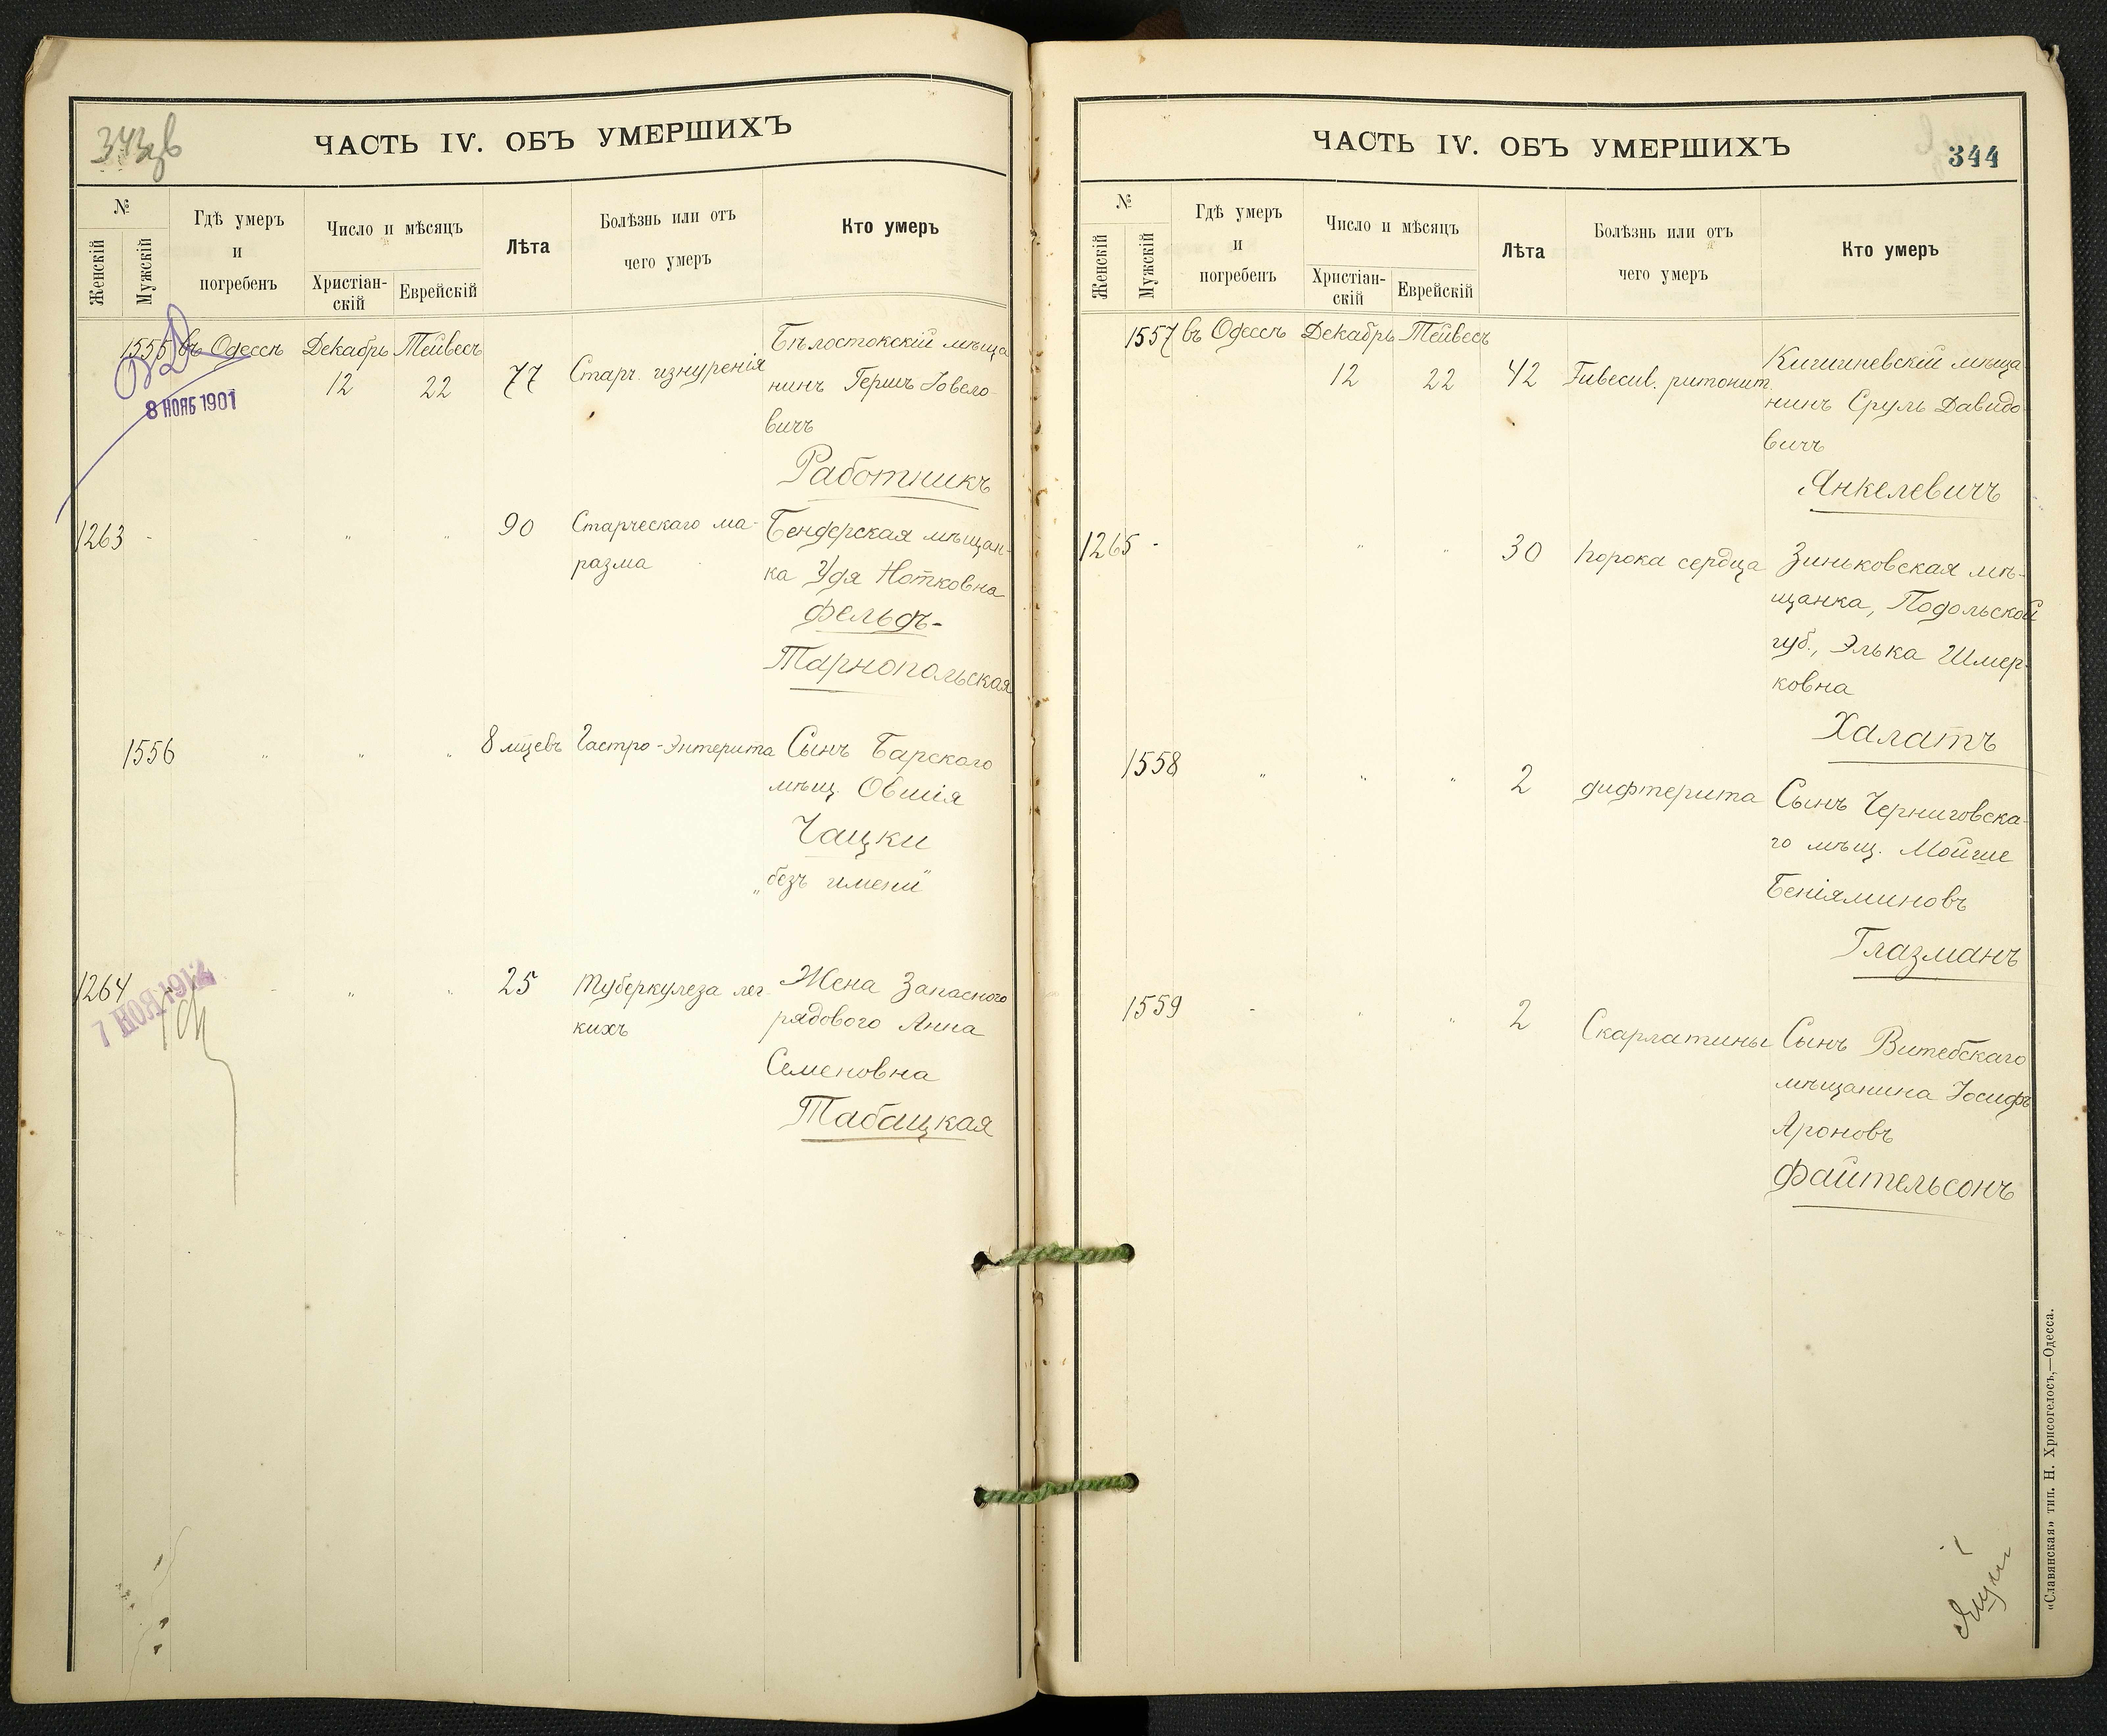 343об
ЧАСТЬ IV. ОБЪ УМЕРШИХЪ
№
Женскій
Мужскій
Гдѣ умеръ
и
погребенъ
Число и мѣсяцъ
Христіан-
скій
Еврейскій
Лѣта
Болѣзнь или отъ
чего умеръ
Кто умеръ
1555 въ Одессѣ Декабрь Тейвесъ
12 22 77 Старч. изнуренія
Бѣлостокскій мѣща
нинъ Гершъ Іовело-
вичъ
Работникъ
8 НОЯБ 1901
1263 - - " " 90 Старческаго ма-
разма
Бендерская мѣщан-
ка Удя Нотковна
Фельдъ-
Тарнопольская
1556 " " " 8 мцевъ Гастро-Энтерита
Сынъ Барскаго
мѣщ. Овшія
Чацки
„безъ имени"
1264 - " " 25 Туберкулеза лег-
кихъ
Жена Запаснаго
рядового Анна
Семеновна
Табацкая
7 НОЯ 1912
ЧАСТЬ IV. ОБЪ УМЕРШИХЪ
344
№
Женскій
Мужскій
Гдѣ умеръ
и
погребенъ
Число и мѣсяцъ
Христіан-
скій
Еврейскій
Лѣта
Болѣзнь или отъ
чего умеръ
Кто умеръ
1557 въ Одессѣ Декабрь Тейвесъ
12 22 42
Кишиневскій мѣща
нинъ Сруль Давидо
вичъ
Янкелевичъ
1265 - " " 30 порока сердца
Зиньковская мѣ-
щанка, Подольской
губ., Элька Шмер-
ковна
Халатъ
1558 " " " 2 дифтерита
Сынъ Черниговска-
го мѣщ. Мойше
Беніяминовъ
Глазманъ
1559 - " " 2 Скарлатины
Сынъ Витебскаго
мѣщанина Іосифъ
Ароновъ
Файтельсонъ
«Славянская» тип. Н. Хрисогелосъ,—Одесса.